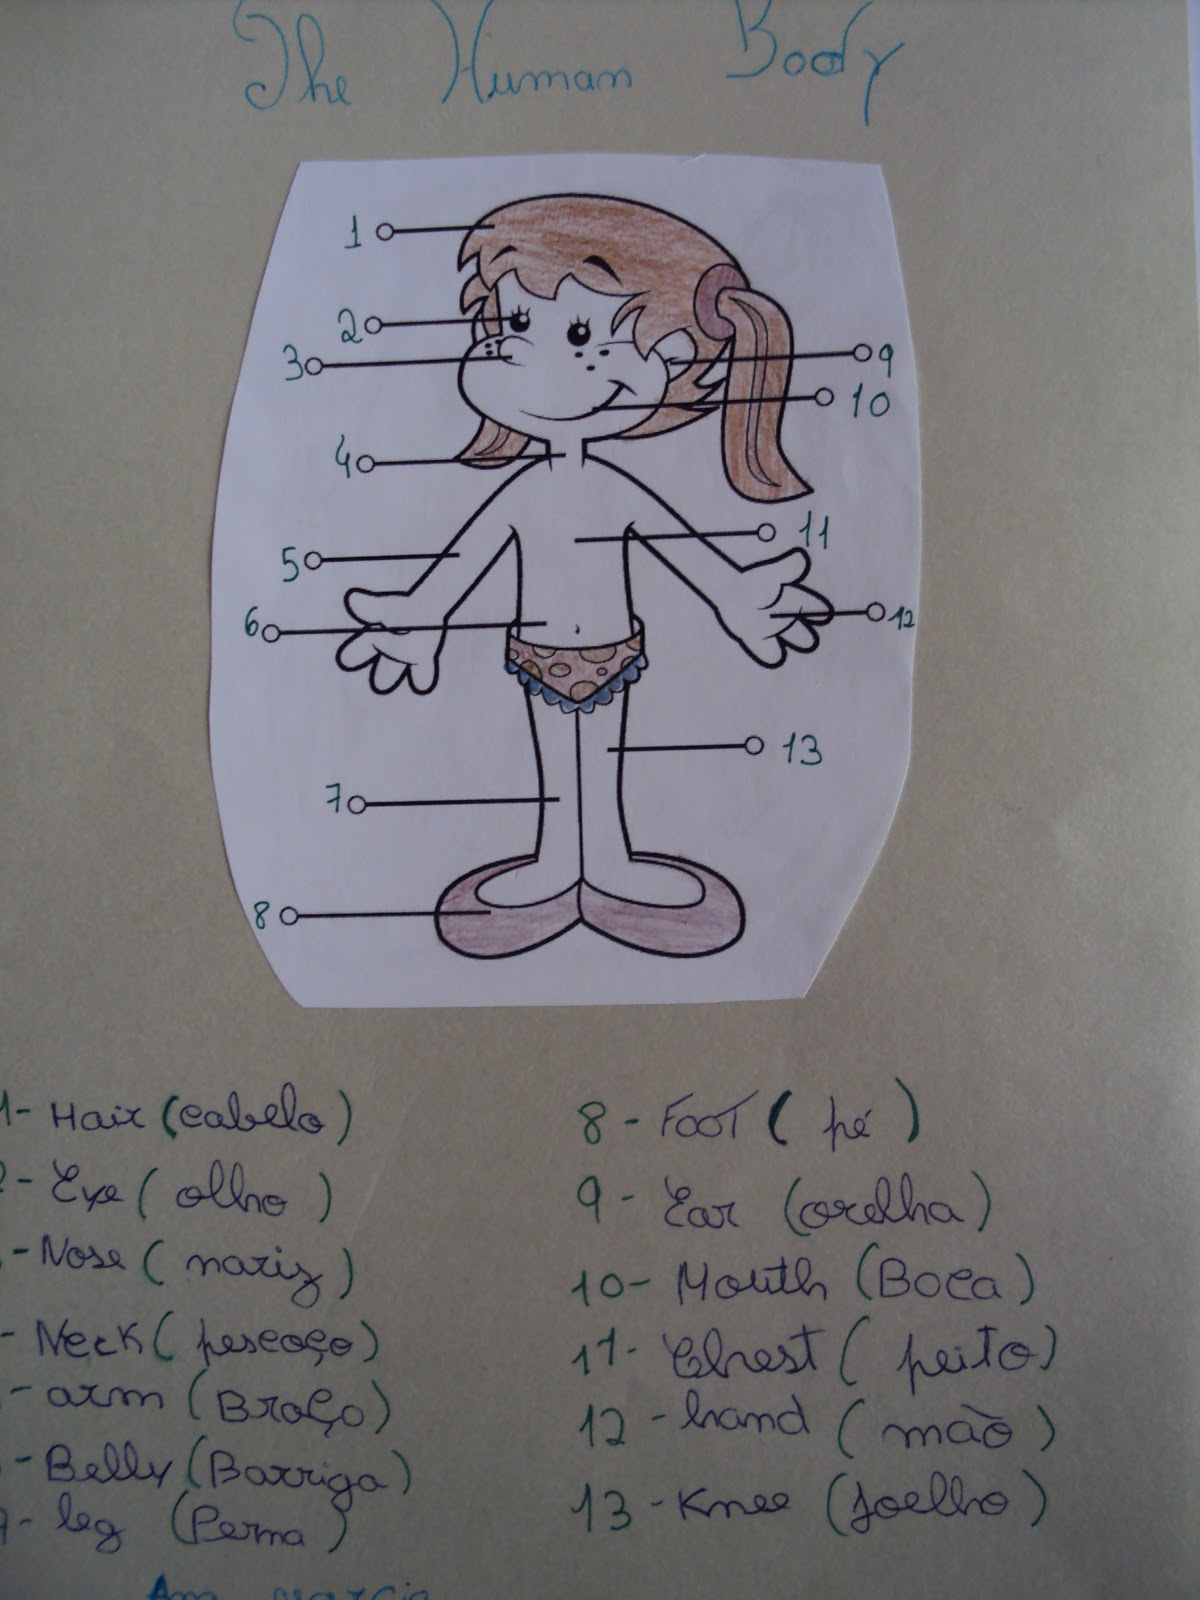 The Human Body
1
2
3
4
5
6
7
8
9
10
11
12
13
1- Hair (cabelo)
2- Eye (olho)
- Nose (nariz)
- Neck (pescoço)
- arm (Braço)
- Belly (Barriga)
7- leg (Perna)
8 - FOOT (pé)
9 - Ear (orelha)
10- Mouth (Boca)
11- Chest (peito)
12 - hand (mão)
13 - Knee (Joelho)